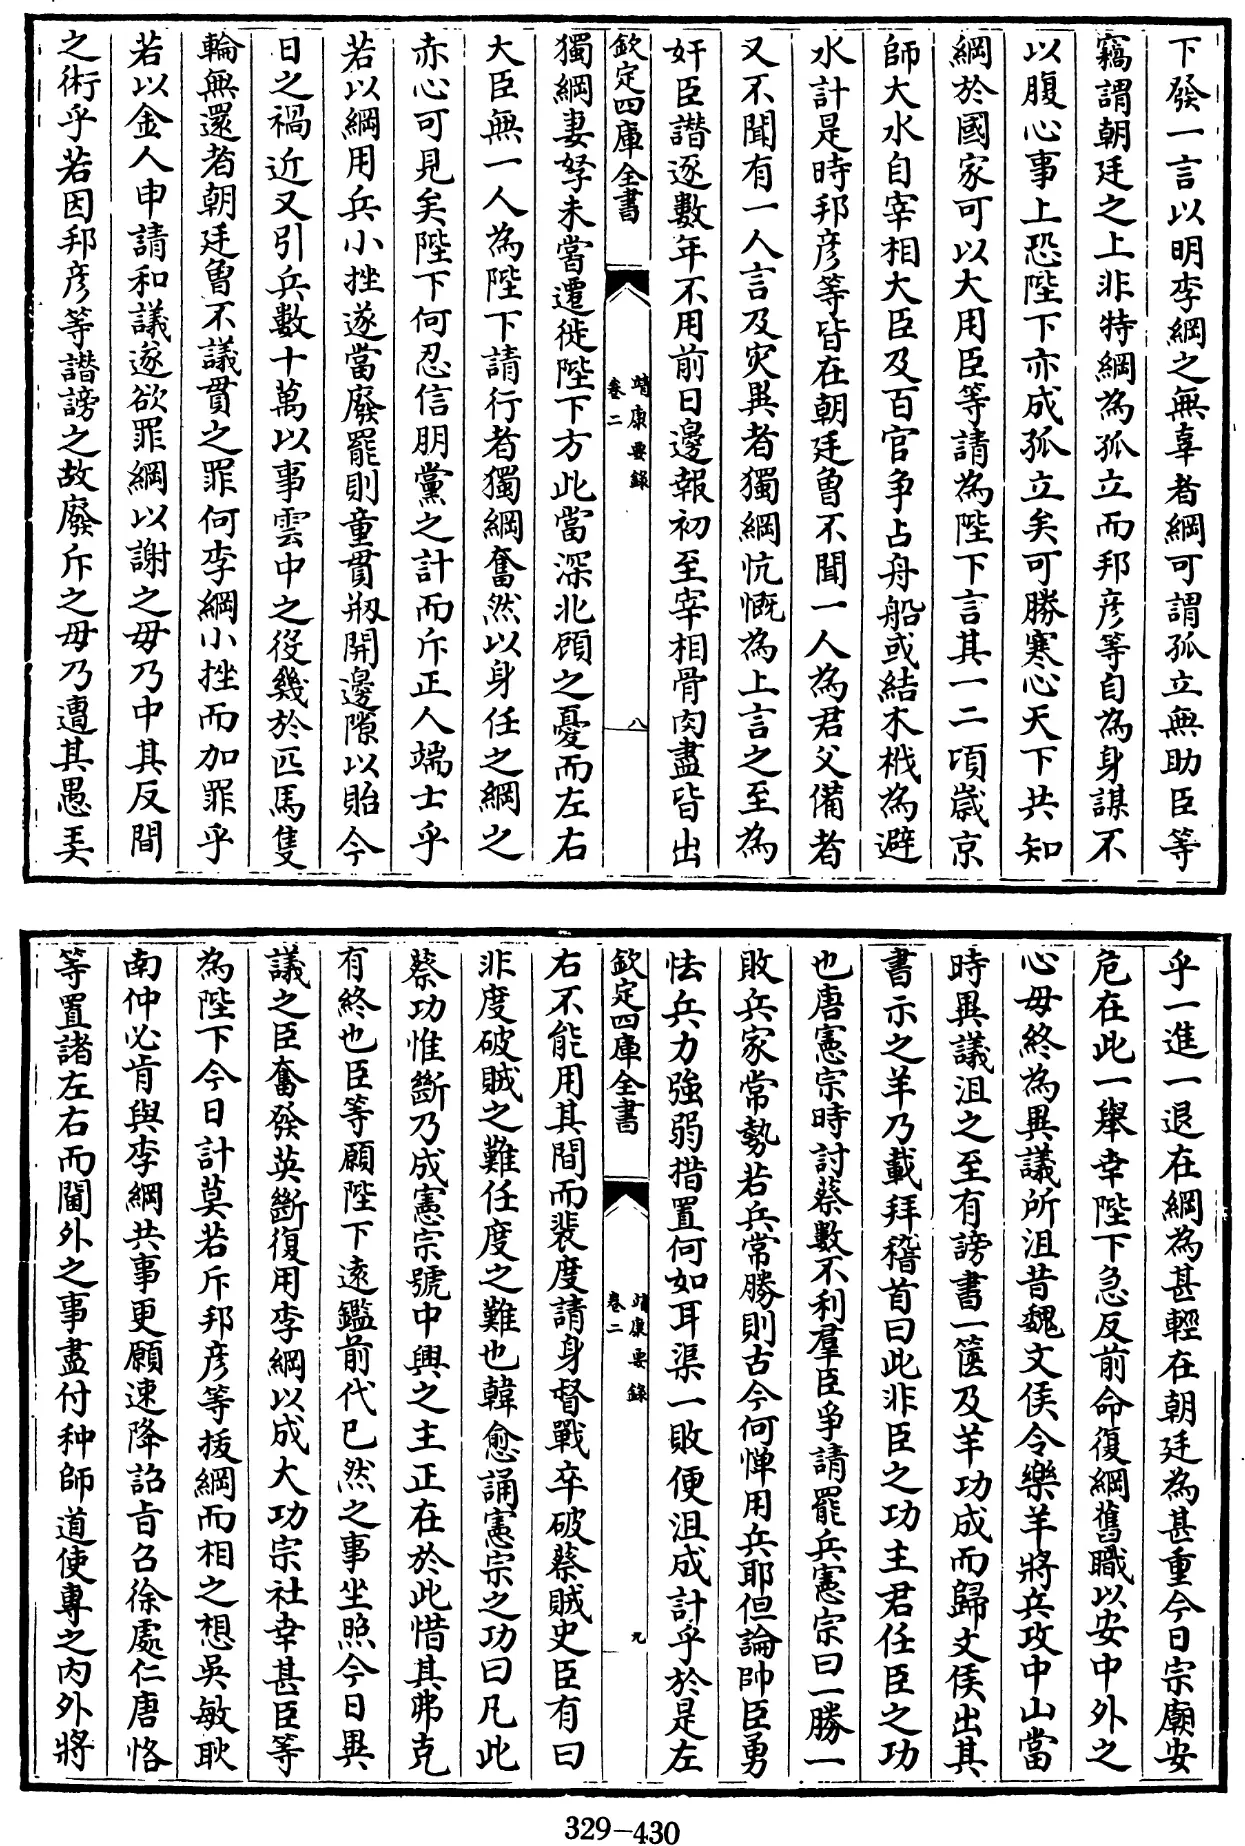 下發一言以明李綱之無辜者綱可謂孤立無助臣等
竊謂朝廷之上非特綱為孤立而邦彦等自為身謀不
以腹心事上恐陛下亦成孤立矣可勝寒心天下共知
綱於國家可以大用臣等請為陛下言其一二項嵗京
師大水自宰相大臣及百官争占舟船或結木栰為避
水計是時邦彦等皆在朝廷曾不聞一人為君父備者
又不聞有一人言及灾異者獨綱忼慨為上言之至為
奸臣譖逐數年不用前日邊報初至宰相骨肉盡皆出
欽定四庫全書
靖康要錄
卷二
八
獨綱妻孥未嘗遷徙陛下方此當深北顧之憂而左右
大臣無一人為陛下請行者獨綱奮然以身任之綱之
赤心可見矣陛下何忍信朋黨之計而斥正人端士乎
若以綱用兵小挫遂當廢罷則童貫刱開邊隙以貽今
日之禍近又引兵數十萬以事雲中之役幾於匹馬隻
輪無還者朝廷曾不議貫之罪何李綱小挫而加罪乎
若以金人申請和議遂欲罪綱以謝之毋乃中其反間
之術乎若因邦彦等譖謗之故廢斥之毋乃遭其愚弄
乎一進一退在綱為甚輕在朝廷為甚重今日宗廟安
危在此一舉幸陛下急反前命復綱舊職以安中外之
心毋終為異議所沮昔魏文侯令樂羊將兵攻中山當
時異議沮之至有謗書一篋及羊功成而歸文侯出其
書示之羊乃載拜稽首曰此非臣之功主君任臣之功
也唐憲宗時討蔡數不利羣臣爭請罷兵憲宗曰一勝一
敗兵家常勢若兵常勝則古今何憚用兵耶但論帥臣勇
怯兵力強弱措置何如耳渠一敗便沮成計乎於是左
欽定四庫全書
靖康要錄
卷二
九
右不能用其間而裴度請身督戰卒破蔡賊史臣有曰
非度破賊之難任度之難也韓愈誦憲宗之功曰凡此
蔡功惟斷乃成憲宗號中興之主正在於此惜其弗克
有終也臣等願陛下遠鑑前代已然之事坐照今日異
議之臣奮發英斷復用李綱以成大功宗社幸甚臣等
為陛下今日計莫若斥邦彦等拔綱而相之想吳敏耿
南仲必肯與李綱共事更願速降詔旨召徐處仁唐恪
等置諸左右而閫外之事盡付种師道使專之内外將
329-430